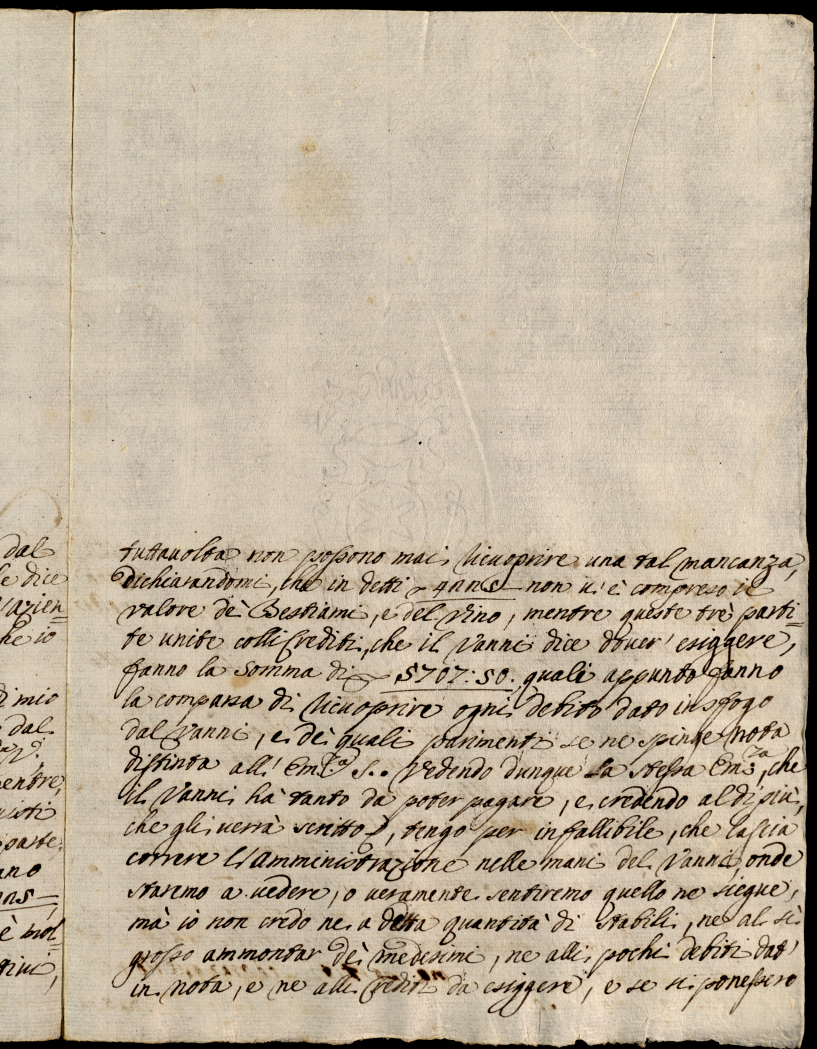 dal
le dice
l'azien=
he io
di mio
dal
mentre,
ano
è mol=
tivi,
tuttavolta non possono mai ricuoprire una tal mancanza,
dichiarandomi, che in detti non vi è compreso il
valore dè Bestiami, e del Vino, mentre queste trè parti=
te unite colli Crediti, che il Vanni dice dover' esiggere,
fanno la somma di 5707:50. quali appunto fanno
la comparsa di ricuoprire ogni debito dato in sfogo
dal Vanni, e dè quali parimenti se ne spinge nota
distinta all' Em.za S.. Vedendo dunque la stessa Em.za, che
il Vanni hà tanto da poter pagare, e credendo al di più,
che gli verrà scritto, tengo per infallibile, che lascia
correre l'Amministrazione nelle mani del Vanni, onde
staremo a vedere, o veramente sentiremo quello ne siegue,
mà io non credo ne a detta quantità di stabili, ne al sì
grosso ammontar dè medesimi, ne alli pochi debiti dat'
in nota, e ne alli Crediti da esiggere, e se si ponessero